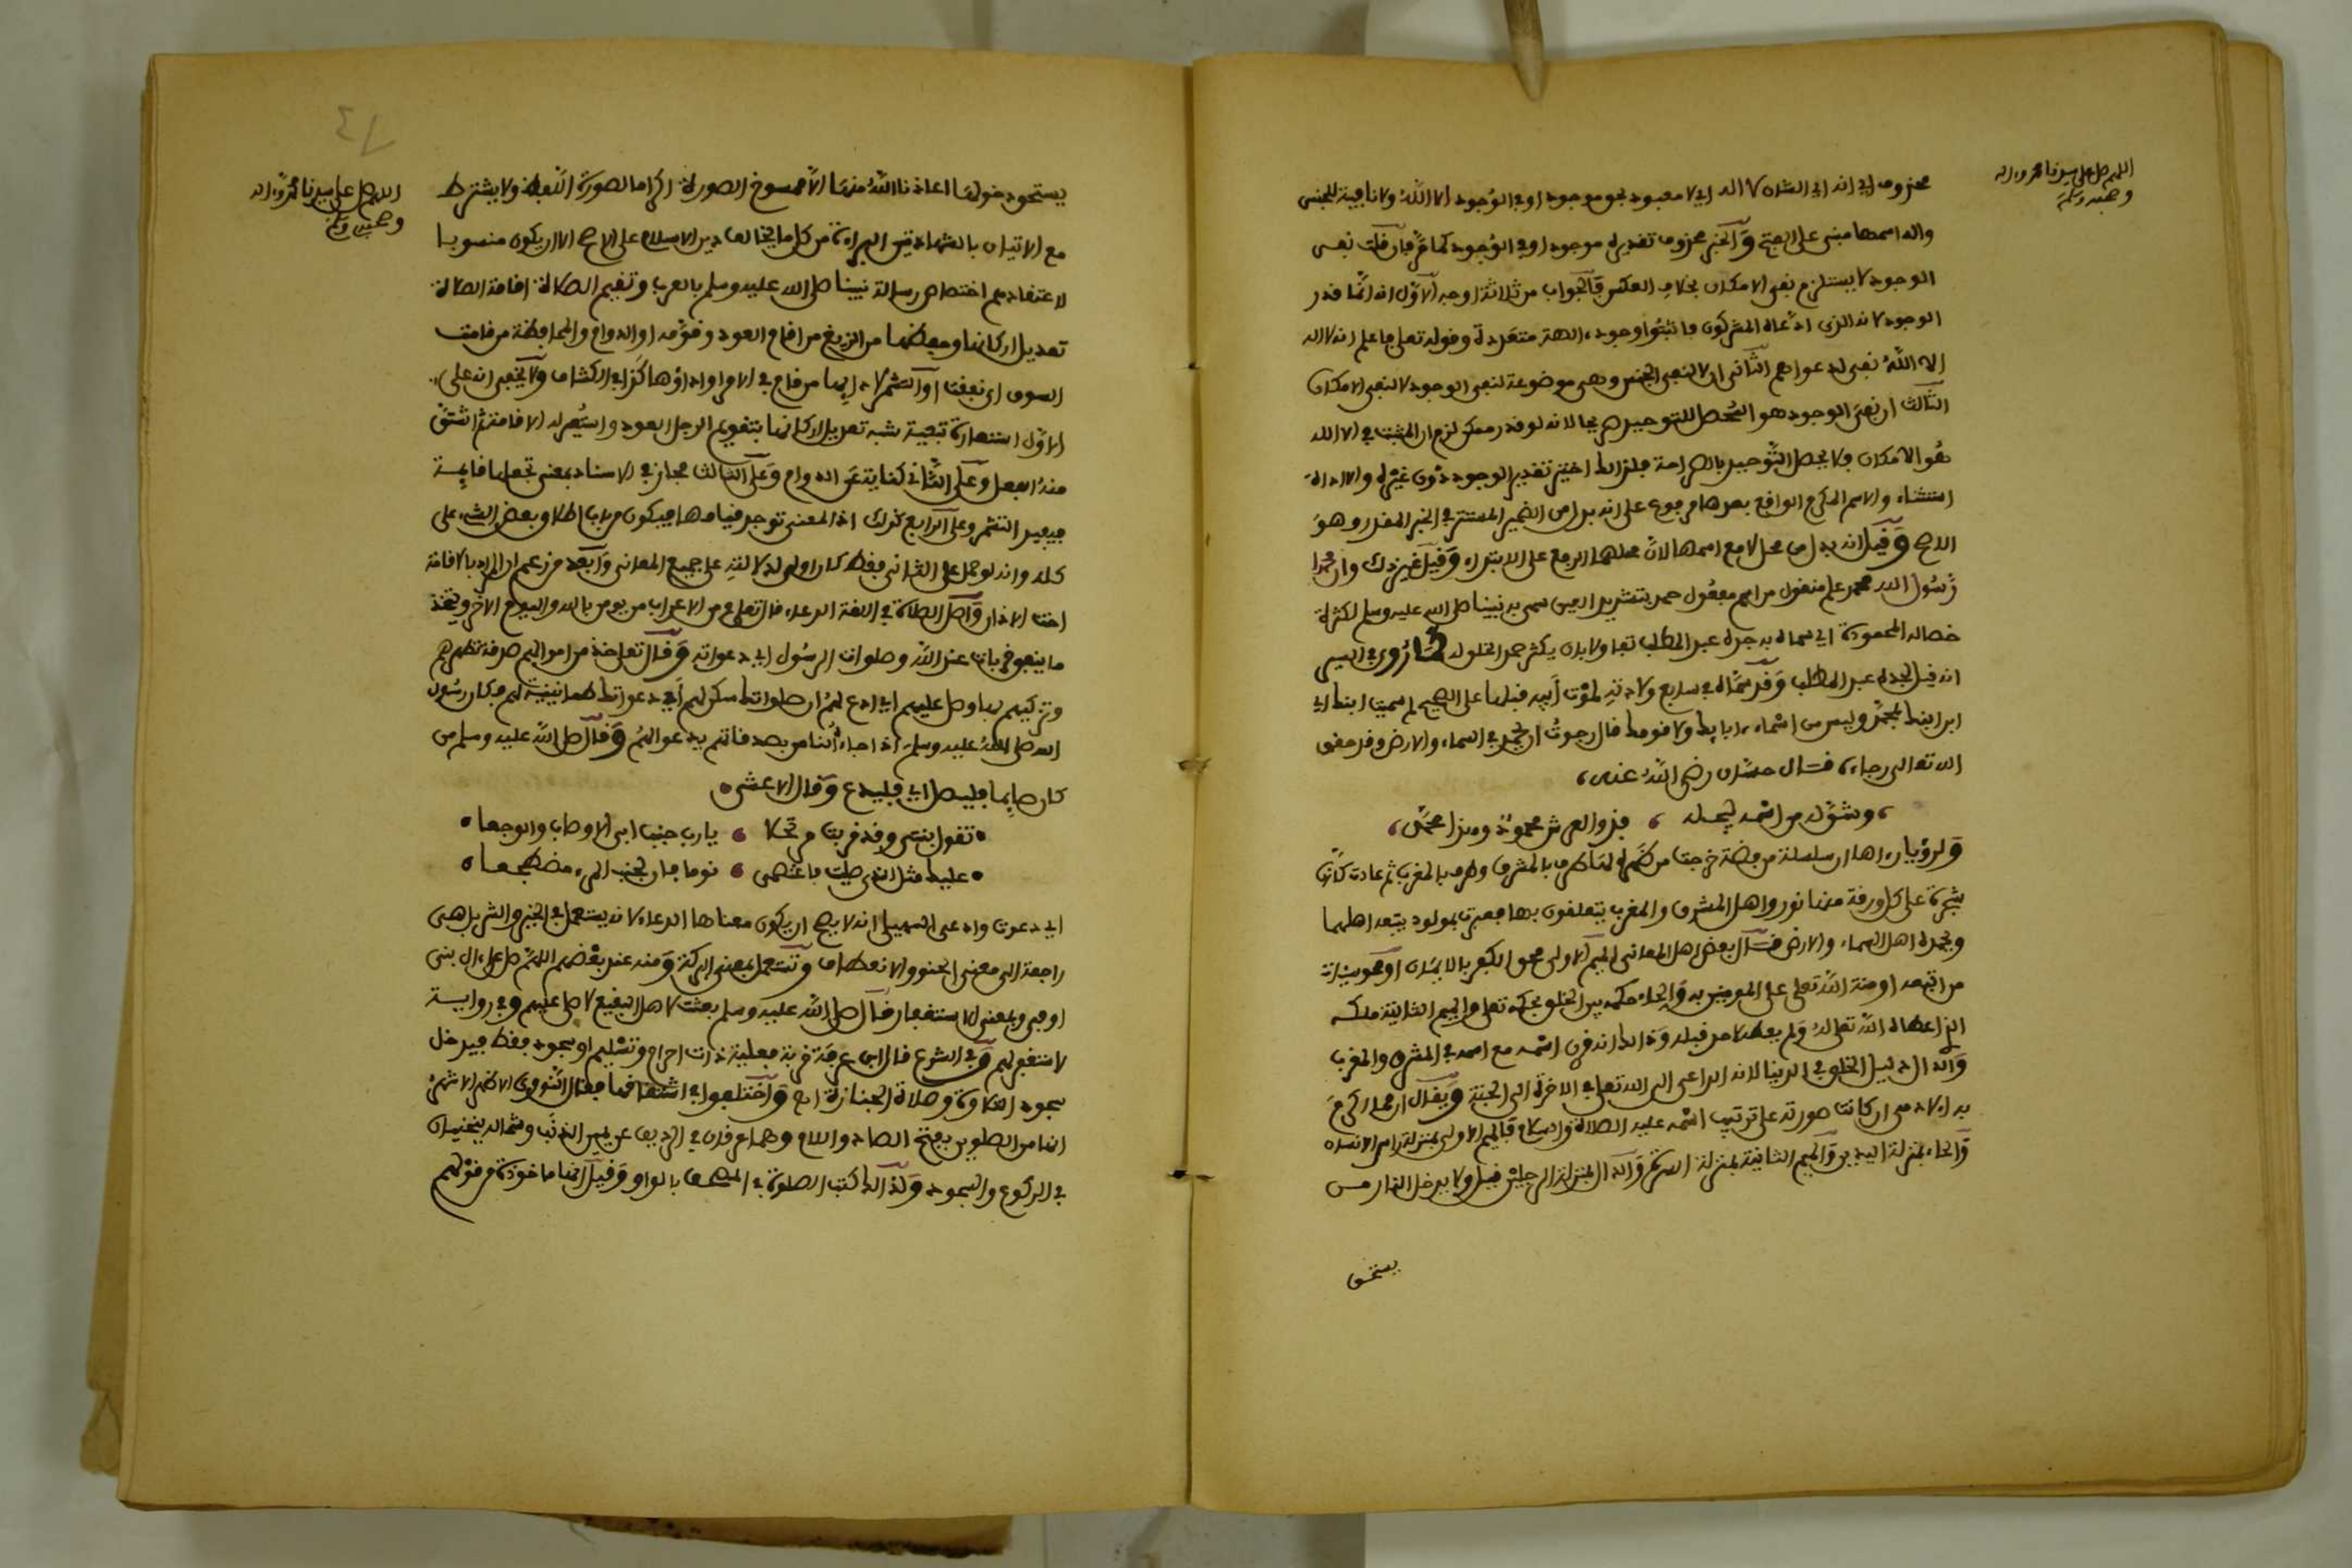 اللهم صل على سيدنا محمد وءاله
وصحبه وسلم
محذوف اي انه اي الشان لا اله اي لا معبود بحق موجود او في الوجود الا الله ولا نافية للجنس
واله اسمها مبني على الفتح والخبر محذوف تقديره موجود او في الوجود كما مر فان قلت نفي
الوجود لا يستلزم نفي الامكان بخلاف العكس فالجواب من ثلاثة اوجه الاول انه انما قدر
الوجود لانه الذي ادعاه المشركون فاثبتوا وجود ءالهة متعددة وقوله تعلى فاعلم انه لا اله
الا الله نفي لدعواهم الثاني ان لا لنفي الجنس وهي موضوعة لنفي الوجود لا لنفي الامكان
الثالث ان نفي الوجود هو المحصل للتوحيد صريحا لانه لو قدر ممكن لزم ان المثبت في الا الله
هو الامكان ولا يحصل التوحيد بالصراحة فلذالك اختير تقدير الوجود دون غيره والا اداة
استثناء والاسم الكريم الواقع بعدها مرفوع على انه بدل من الضمير المستتر في الخبر المقدر وهو
الاصح وقيل انه بدل من محل لا مع اسمها لان محلهما الرفع على الابتداء وقيل غير ذلك وان محمدا
رسول الله محمد علم منقول من اسم مفعول حمد بتشديد العين سمي به نبينا صلى الله عليه وسلم لكثرة
خصاله المحمودة اي سماه به جده عبد المطلب تفاولا بان يكثر حمد الخلق له كما روي في السير
انه قيل لجده عبد المطلب وقد سماه في سابع ولادته لموت ابيه قبلها على الصحيح لم سميت ابنك اي
ابن ابنك محمد وليس من اسماء ءابايك ولا قومك قال رجوت ان يحمد في السماء والارض وقد حقق
الله تعالى رجاءه قال حسان رضي الله عنه
وشق له من اسمه ليجله فذو العرش محمود وهذا محمد
ولرؤيا رءاها ان سلسلة من فضة خرجت من ظهره لها طرف بالمشرق وطرف بالمغرب ثم عادت كانها
شجرة على كل ورقة منها نور واهل المشرق والمغرب يتعلقون بها فعبرت بمولود يتبعه اهلهما
ويحمده اهل السماء والارض قال بعض اهل المعاني الميم الاولى محو الكفر بالايمان او محو سيئات
من اتبعه او منة الله تعلى على المومنين به والحاء حكمه بين الخلق بحكم تعلى والميم الثانية ملكه
الذي اعطاه الله تعالى له ولم يعطه لاحد قبله وذالك انه قرن اسمه مع اسمه في المشرق والمغرب
والدال دليل الخلق في الدنيا لانه الداعي الى الله تعلى في الاخرة الى الجنة ويقال ان مما اكرم
به الادمي ان كانت صورته على ترتيب اسمه عليه الصلاة والسلام فالميم الاولى بمنزلة راس الانسان
والحاء بمنزلة اليدين والميم الثانية بمنزلة السرة والدال بمنزلة الرجلين قيل ولا يدخل النار من
يستحق
اللهم صل على سيدنا محمد وءاله
وصحبه وسلم
يستحق دخولها اعاذنا الله منها الا ممسوخ الصورة اكراما لصورة اللفظ ولا يشترط
مع الاتيان بالشهادتين البراءة من كل ما يخالف دين الاسلام على الاصح الا ان يكون منسوبا
لاعتقادهم اختصاص رسالة نبينا صلى الله عليه وسلم بالعرب وتقيم الصلاة اقامة الصلاة
تعديل اركانها وحفظها من الزيغ من اقام العود وقومه او الدوام والمحافظة من قامت
السوق اي نفقت او التشمر لادايها من قام في الامر او اداؤها كذا في الكشاف ولا يخفى انه على
الاول استعارة تبعية شبه تعديل اركانها بتقويم الرجل العود واستعير له الاقامة ثم اشتق
منه الفعل وعلى الثاني كناية عن الدوام وعلى الثالث مجاز في الاسناد بمعنى تجعلها قايمة
فيفيد التشمر وعلى الرابع كذلك اذ المعنى توجد قيامها فيكون من باب اطلاق بعض الشيء على
كله وانه لو حمل على الثاني فقط كان اولى لدلالته على جميع المعاني وابعد من زعم ان المراد بالاقامة
اخت الاذان واصل الصلاة في اللغة الدعاء قال تعلى ومن الاعراب من يومن بالله واليوم الاخر ويتخذ
ما ينفق قربات عند الله وصلوات الرسول اي دعواته وقال تعلى خذ من اموالهم صدقة تطهرهم
وتزكيهم بها وصل عليهم اي ادع لهم ان صلواتك سكن لهم اي دعواتك طمانينة لهم وكان رسول
الله صلى الله عليه وسلم اذا جاءه الناس بصدقاتهم يدعو لهم وقال صلى الله عليه وسلم من
كان صايما فليصل اي فليدع وقال الاعشى
تقول بنتي وقد قربت مرتحلا يا رب جنب ابي الاوصاب والوجعا
عليك مثل الذي صليت فاغتمضي نوما فان لجنب المرء مضطجعا
اي دعوت وادعى السهيلي انه لا يصح ان يكون معناها الدعاء لانه يستعمل في الخير والشر بل هي
راجعة الى معنى الحنو والانعطاف وتستعمل بمعنى البركة ومنه عند بعضهم اللهم صل على ءال ابي
اوفى وبمعنى الاستغفار قال صلى الله عليه وسلم بعثت لاهل البقيع لاصلي عليهم وفي رواية
لاستغفر لهم وفي الشرع قال ابن عرفة قربة فعلية ذات احرام وتسليم او سجود فقط فيدخل
سجود التلاوة وصلاة الجنازة اه واختلفوا في اشتقاقها فقال النووي الاظهر الاشهر
انها من الصلوين بفتح الصاد واللام وهما عرقان في الردف عن يمين الذنب وشماله ينحنيان
في الركوع والسجود ولذالك كتبت الصلوة في المصحف بالواو وقيل انها ماخوذة من قولهم